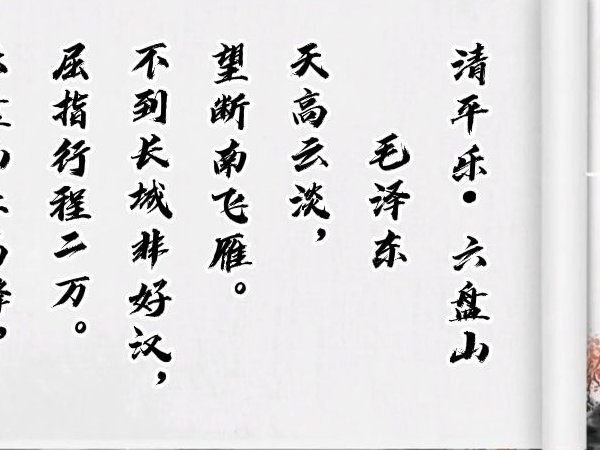 清平乐·六盘山
毛泽东
天高云淡，
望断南飞雁。
不到长城非好汉，
屈指行程二万。
六盘山上高峰，